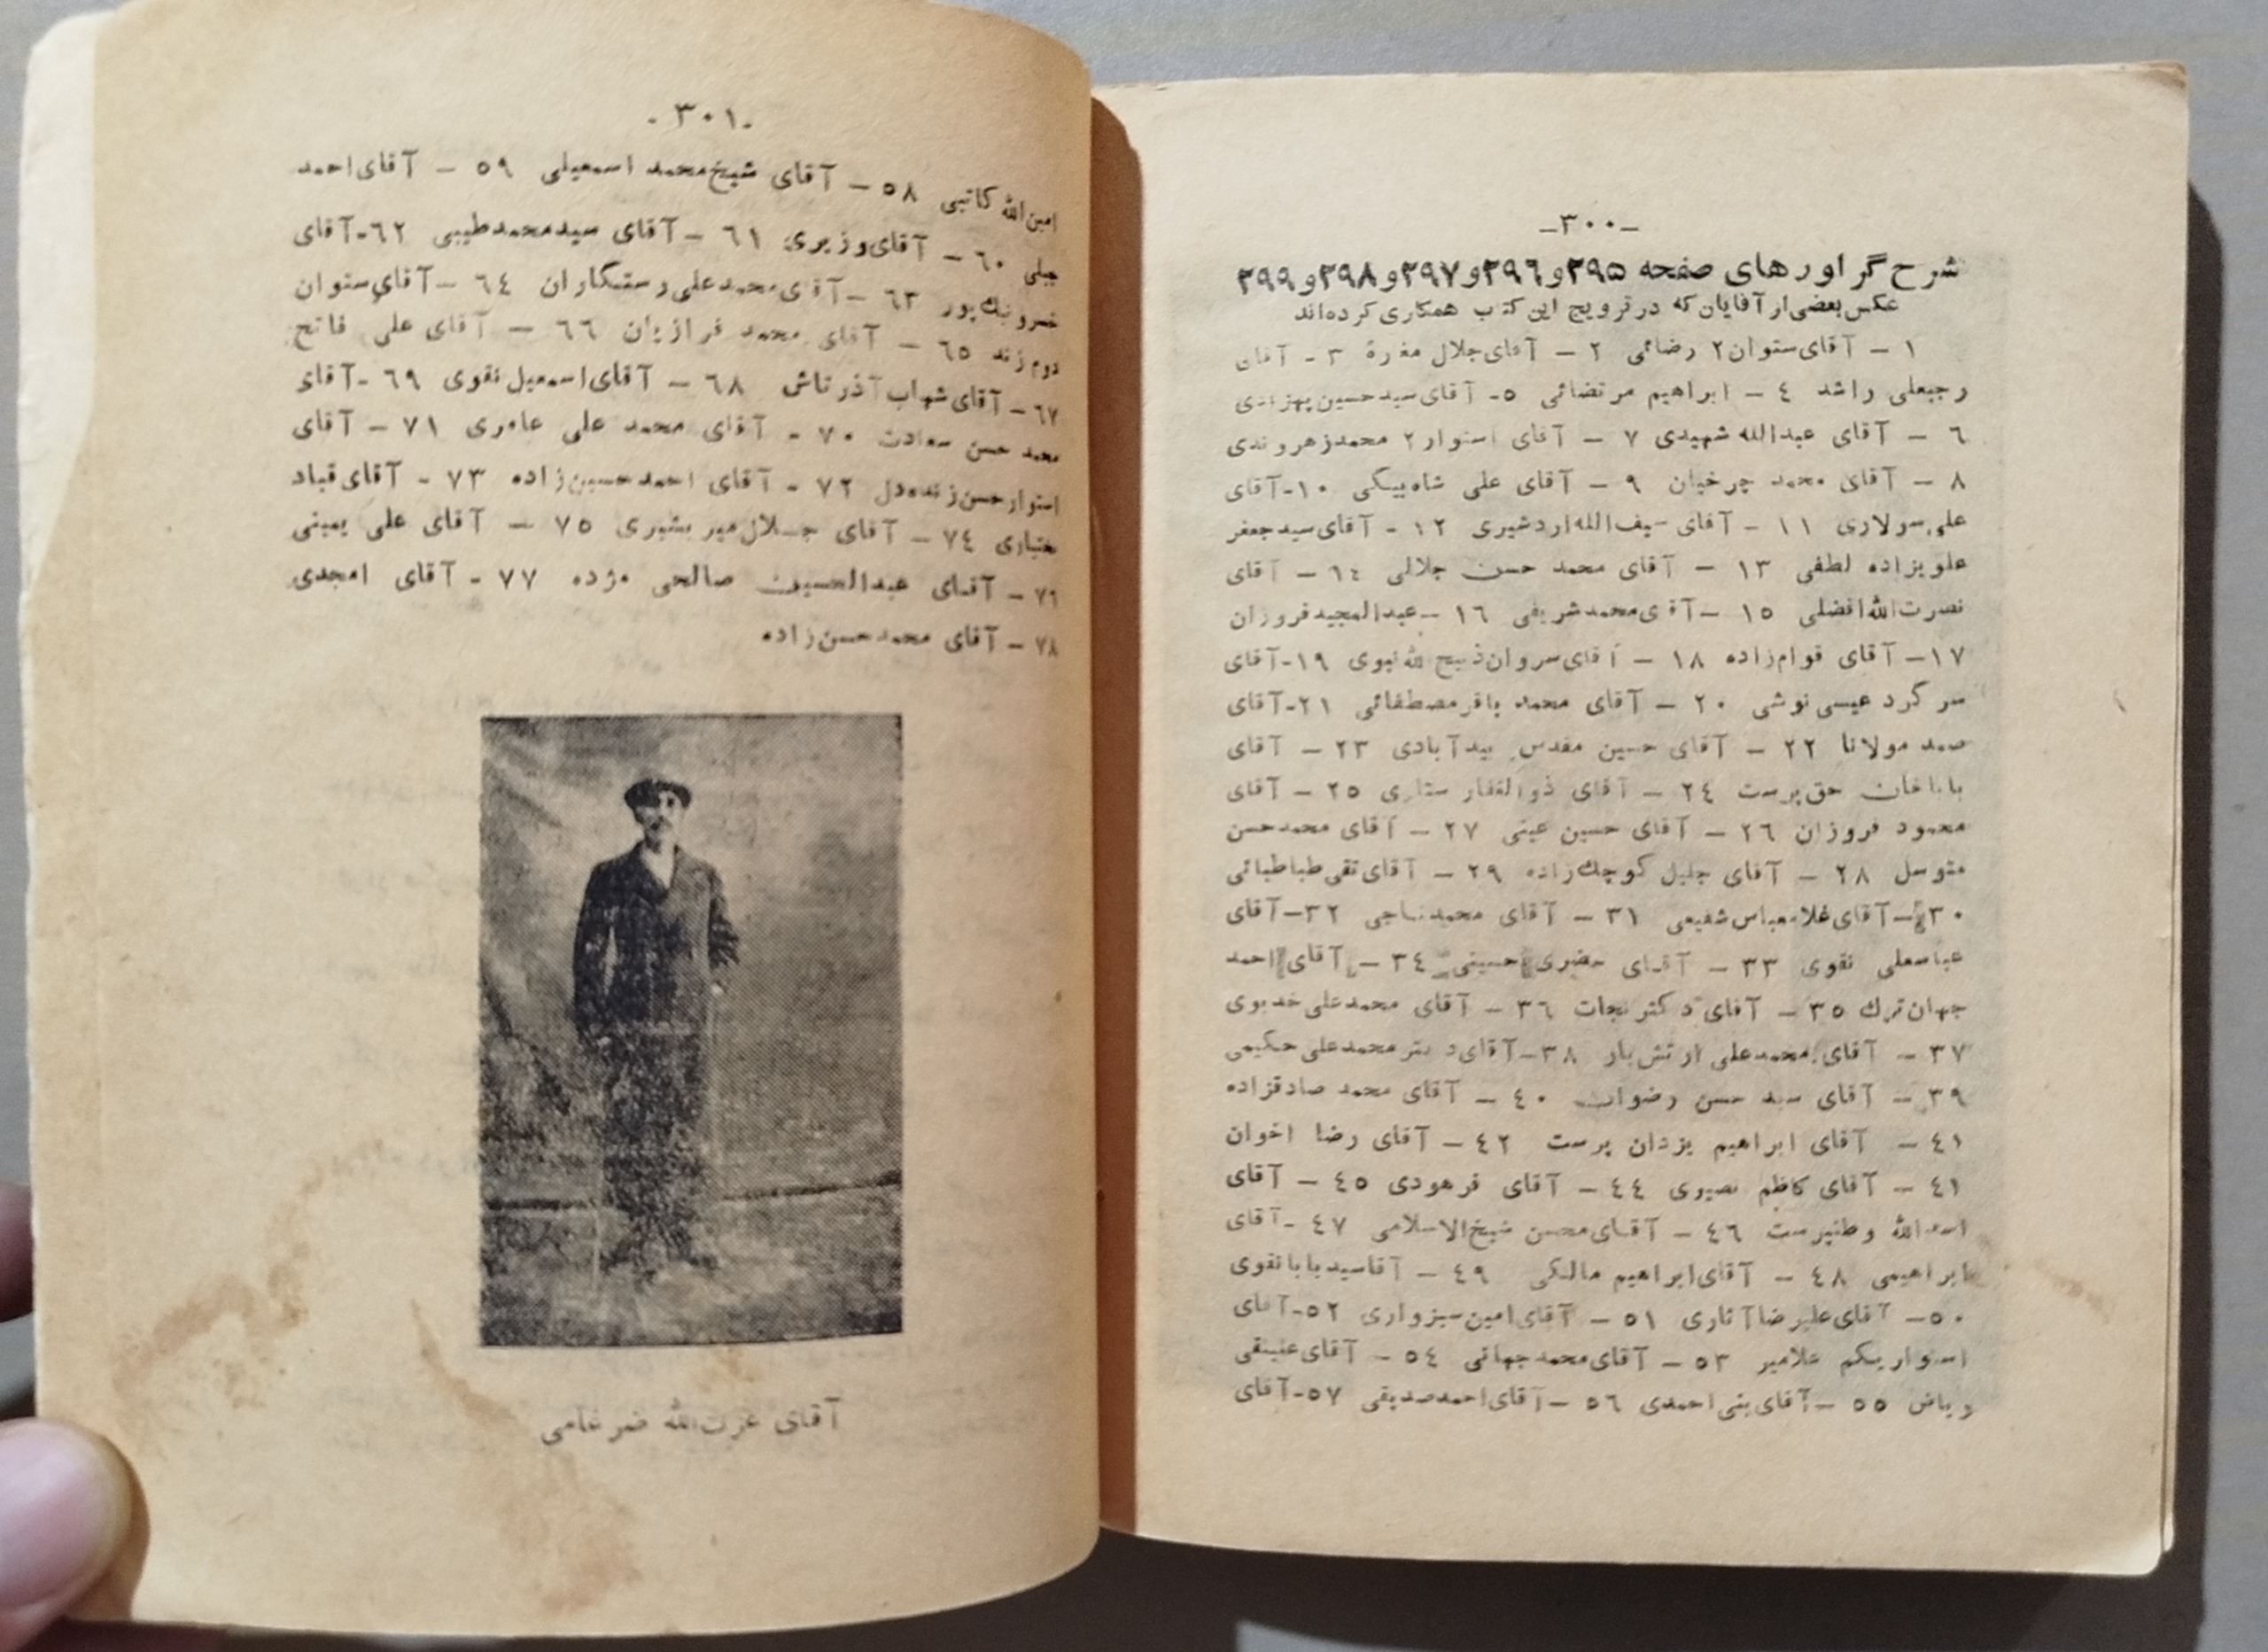 -۳۰۰-
شرح گراورهای صفحه ۲۹۵و۲۹۶و۲۹۷و۲۹۸و۲۹۹
عکس بعضی از آقایان که در ترویج این کتاب همکاری کرده‌اند
۱ – آقای ستوان۲ رضائی ۲ – آقای جلال ۳ - آقای
رجبعلی راشد ٤ – ابراهیم مرتضائی ٥- آقای سید حسین
٦ – آقای عبدالله شهیدی ۷ – آقای استوار ۲ محمد زهروندی
۸ – آقای محمد چرخیان ۹ – آقای علی شاه‌بیگی ۱۰-آقای
علی سولاری ۱۱ – آقای سیف‌الله اردشیری ۱۲ - آقای سید جعفر
علویزاده لطفی ۱۳ – آقای محمد حسن جلالی ۱٤ – آقای
نصرت‌الله افضلی ۱٥ –آقای محمد شریفی ۱٦ –عبدالمجید فروزان
۱۷– آقای قوام‌زاده ۱۸ – آقای سروان ذبیح‌الله نبوی ۱۹-آقای
سرگرد عیسی نوشی ۲۰ – آقای محمد باقر مصطفائی ۲۱-آقای
صمد مولانا ۲۲ – آقای حسین مقدس بیدآبادی ۲۳ – آقای
باباخان حق‌پرست ۲٤ – آقای ذوالفقار ستاری ۲٥ – آقای
محمود فروزان ۲٦ – آقای حسین عینی ۲۷ – آقای محمد حسن
متوسل ۲۸ – آقای جلیل کوچک‌زاده ۲۹ – آقای تقی طباطبائی
۳۰–آقای غلامعباس شفیعی ۳۱ – آقای محمد ناجی ۳۲–آقای
عباسعلی نقوی ۳۳ – آقای خضری حسینی ۳٤ – آقای احمد
جهان ترک ۳٥ – آقای دکتر نجات ۳٦ – آقای محمدعلی خدیوی
۳۷ – آقای محمدعلی ارتش‌یار ۳۸–آقای محمدعلی حکیمی
۳۹ – آقای سید حسن رضوان ٤۰ – آقای محمد صادقزاده
٤۱ – آقای ابراهیم یزدان پرست ٤۲ – آقای رضا اخوان
٤۱ – آقای کاظم نصیری ٤٤ – آقای فرهودی ٤٥ – آقای
اسدالله وطنپرست ٤٦ – آقای محسن شیخ‌الاسلامی ٤۷ -آقای
ابراهیمی ٤۸ – آقای ابراهیم مالکی ٤۹ – آقا سید بابا نقوی
٥۰– آقای علیرضا آثاری ٥۱ – آقای امین سبزواری ٥۲-آقای
استوار یکم غلامیر ٥۳ – آقای محمد جهانی ٥٤ – آقای
ریاض ٥٥ –آقای بنی احمدی ٥٦ –آقای احمد صدیقی ٥۷-آقای
-۳۰۱-
امین‌الله کاتبی ٥۸ – آقای شیخ محمد اسمعیلی ٥۹ – آقای احمد
جبلی ٦۰ – آقای وزیری ٦۱ –آقای سید محمد طیبی ٦۲-آقای
خسرو نیک‌پور ٦۳ –آقای محمدعلی رستگاران ٦٤ –آقای ستوان
دوم زند ٦٥ – آقای محمد فرازیان ٦٦ – آقای علی فاتح
٦۷ – آقای شهاب آذرتاش ٦۸ – آقای اسمعیل نقوی ٦۹ -آقای
محمد حسن سعادت ۷۰ - آقای محمد علی عامری ۷۱ – آقای
استوار حسن زنده‌دل ۷۲ - آقای احمد حسین‌زاده ۷۳ - آقای قباد
بختیاری ۷٤ – آقای جلال میر بشیری ۷٥ – آقای علی یمینی
۷٦ – آقای عبدالحسین صالحی مژده ۷۷ - آقای امجدی
۷۸ – آقای محمد حسن‌زاده
آقای عزت‌الله ضرغامی